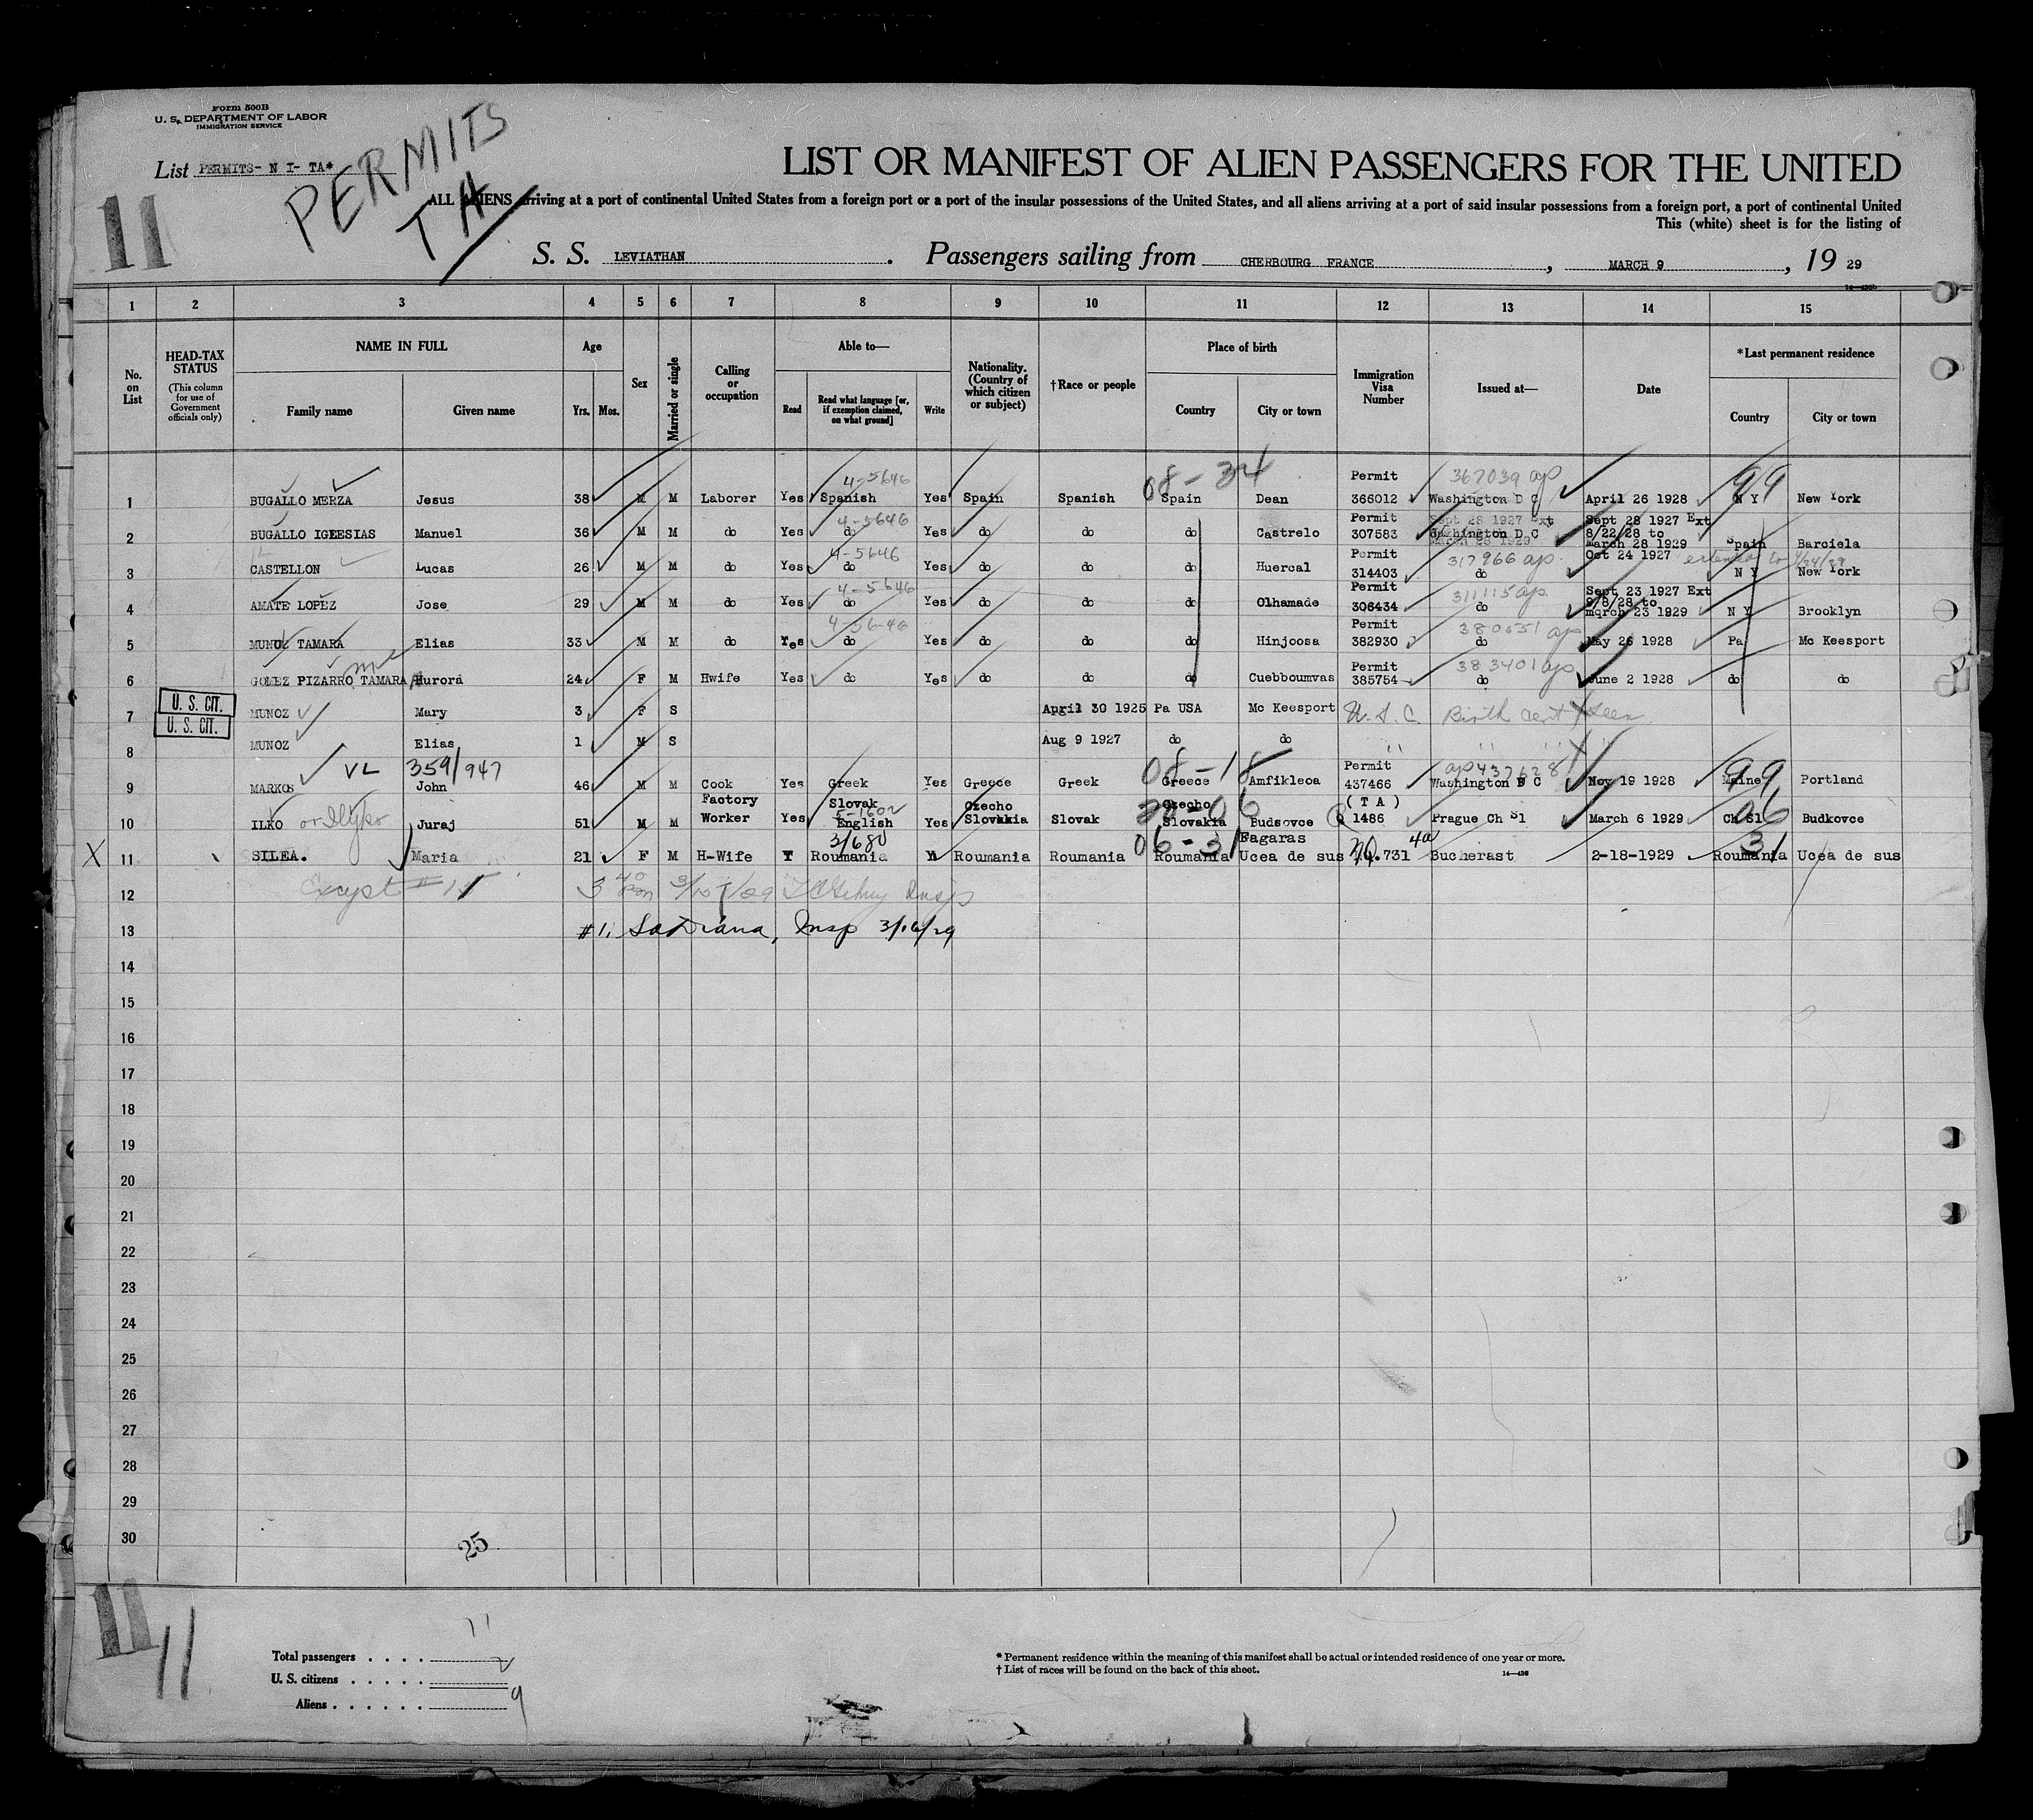 Form 500B
U. S. DEPARTMENT OF LABOR
IMMIGRATION SERVICE
List PERMITS- N I- TA*
PERMITS
TA
11
LIST OR MANIFEST OF ALIEN PASSENGERS FOR THE UNITED
ALL ALIENS arriving at a port of continental United States from a foreign port or a port of the insular possessions of the United States, and all aliens arriving at a port of said insular possessions from a foreign port, a port of continental United
This (white) sheet is for the listing of
S. S. LEVIATHAN. Passengers sailing from CHERBOURG FRANCE, MARCH 9, 19 29
1 2 3 4 5 6 7 8 9 10 11 12 13 14 15
No. on List
HEAD-TAX STATUS (This column for use of Government officials only)
NAME IN FULL Family name Given name
Age Yrs. Mos.
Sex
Married or single
Calling or occupation
Able to— Read Read what language [or, if exemption claimed, on what ground] Write
Nationality. (Country of which citizen or subject)
†Race or people
Place of birth Country City or town
Immigration Visa Number
Issued at—
Date
*Last permanent residence Country City or town
4-5646 08-34 Permit 367039 99
1 BUGALLO MERZA Jesus 38 M M Laborer Yes Spanish Yes Spain Spanish Spain Dean 366012 Washington D C April 26 1928 N Y New York
4-5646 Permit Sept 28 1927 Ext Sept 28 1927 Ext
2 BUGALLO IGEESIAS Manuel 36 M M do Yes do Yes do do do Castrelo 307583 Washington D C 8/22/28 to Spain Barciela
March 28 1929 March 28 1929
4-5646 Permit 317966 ap Oct 24 1927 extended to 4/24/29
3 CASTELLON Lucas 26 M M do Yes do Yes do do do Huercal 314403 do N Y New York
4-5646 Permit 311115 ap Sept 23 1927 Ext
4 AMATE LOPEZ Jose 29 M M do Yes do Yes do do do Olhamade 306434 do 9/8/28 to march 23 1929 N Y Brooklyn
4-5646 Permit
5 MUNOZ TAMARA Elias 33 M M do Yes do Yes do do do Hinjoosa 382930 do May 26 1928 Pa Mc Keesport
Permit 383401 ap
6 GOMEZ PIZARRO TAMARA Aurora 24 F M Hwife Yes do Yes do do do Cuebboumvas 385754 do June 2 1928 do do
U. S. CIT.
7 MUNOZ Mary 3 F S April 30 1925 Pa USA Mc Keesport U.S.C. Birth cert seen
U. S. CIT.
8 MUNOZ Elias 1 M S Aug 9 1927 do do " " " "
VL 359/947 08-18 Permit ap 437628 99
9 MARKOS John 46 M M Cook Yes Greek Yes Greece Greek Greece Amfikleoa 437466 Washington D C Nov 19 1928 Maine Portland
Factory Slovak 5-1602 Czecho Czecho 06 ( T A ) 06
10 ILKO or Juraj 51 M M Worker Yes English Yes Slovakia Slovak Slovakia Budsovce 1486 Prague Ch Sl March 6 1929 Ch Sl Budkovce
3/680 06-31 Fagaras 31
X 11 SILEA. Maria 21 F M H-Wife Y Roumania Y Roumania Roumania Roumania Ucea de sus 731 Bucherast 2-18-1929 Roumania Ucea de sus
12 Except # 1
13 #1, Insp 3/16/29
14
15
16
17
18
19
20
21
22
23
24
25
26
27
28
29
30
25
11
11
11
Total passengers . . . .
2
U. S. citizens . . . . .
Aliens . . . . . . 9
* Permanent residence within the meaning of this manifest shall be actual or intended residence of one year or more.
† List of races will be found on the back of this sheet.
14—430